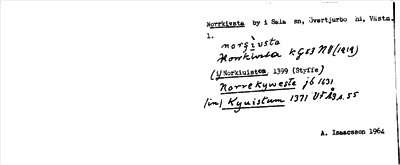 Norrkivsta by i Sala sn, Övertjurbo hd, Västm.
1.
norsivsta
Norrkivsta kGs3 NV (1919)
(y Norkiuistom 1399 (Styffe)
Norrekyweste jb 1631
(in) Kyuistum 1371 UFÅ9 s. 55
A. Isaacsson 1964